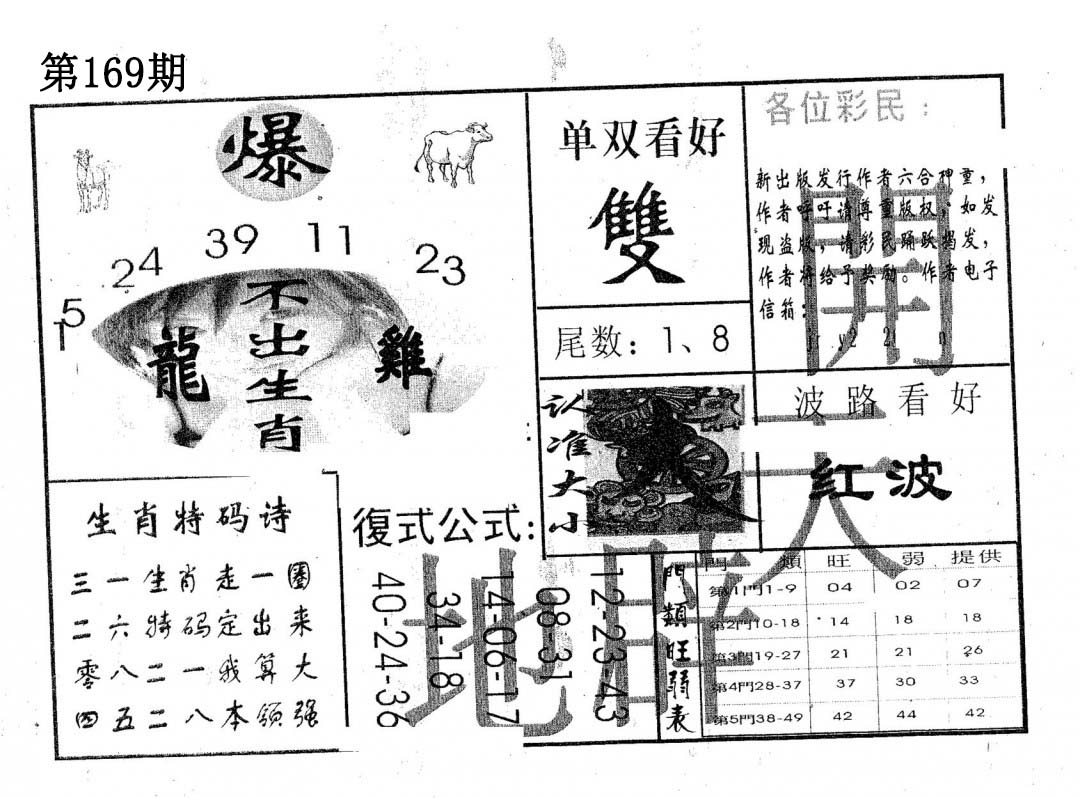 第169期
爆
15
24
39
11
23
龍
不出生肖
雞
单双看好
雙
尾数：1、8
各位彩民：
新出版发行作者六合神童，
作者呼吁请尊重版权，如发
现盗版，请彩民踊跃揭发，
作者将给予奖励。作者电子
信箱：
開
天
地
认准大小
大
波路看好
红波
生肖特码诗
三一生肖走一圈
二六特码定出来
零八二一我算大
四五二八本领强
復式公式：
40-24-36
34-18
14-06-17
08-31
12-23-43
門類旺弱表
門 類 旺 弱 提供
第1門1-9 04 02 07
第2門10-18 14 18 18
第3門19-27 21 21 26
第4門28-37 37 30 33
第5門38-49 42 44 42